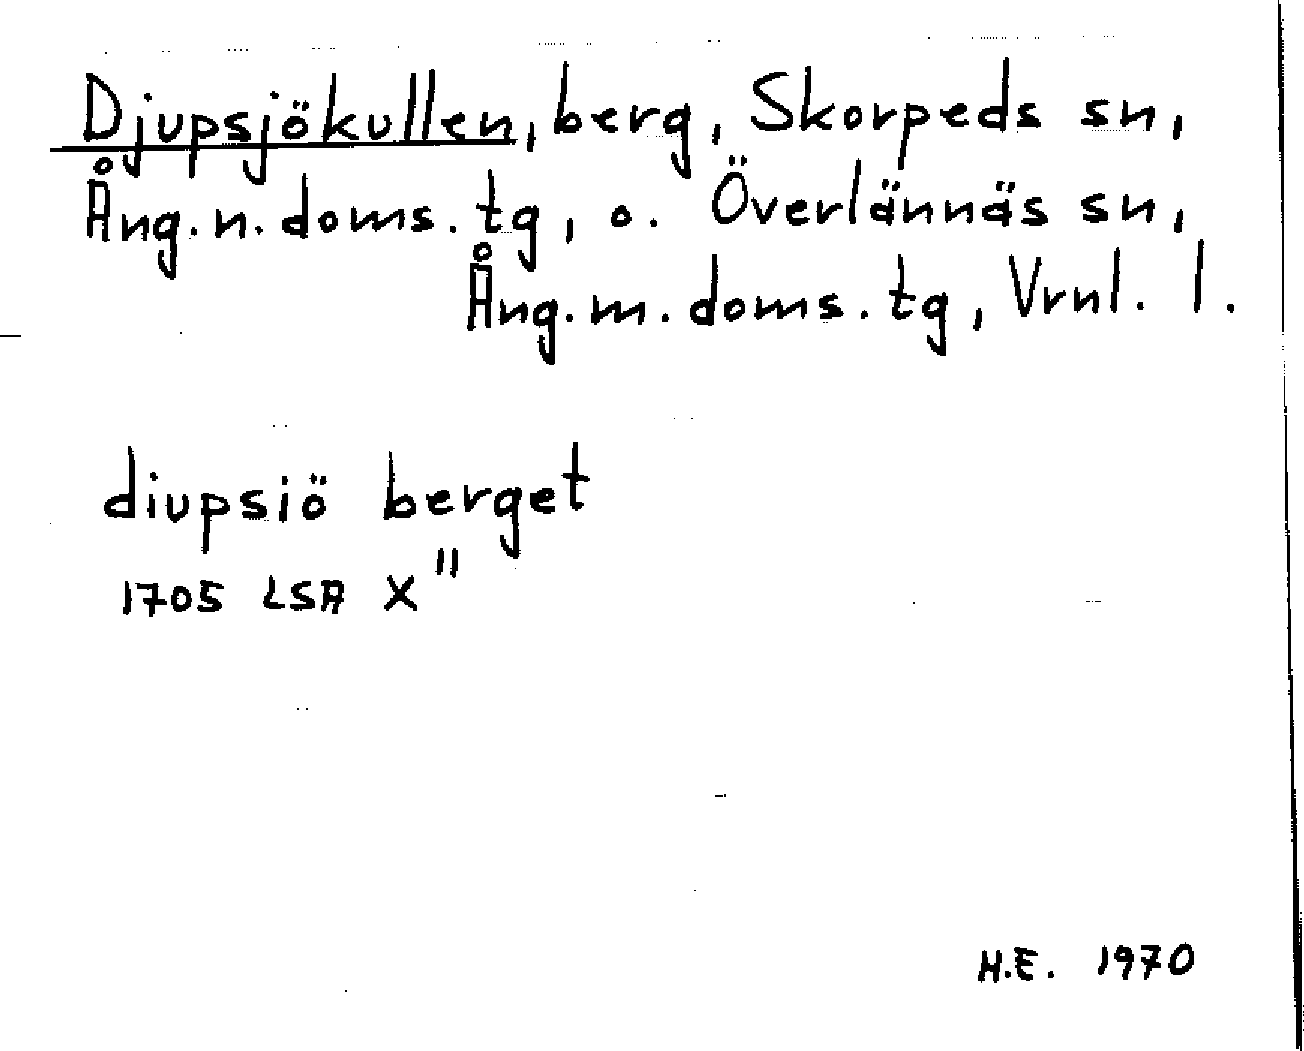 Djupsjökullen, berg, Skorpeds sn,
Ång. n. doms. tg, o. Överlännäs sn,
Ång. m. doms. tg, Vrnl. l.
diupsiö berget
1705 LSA X"
H.E. 1970